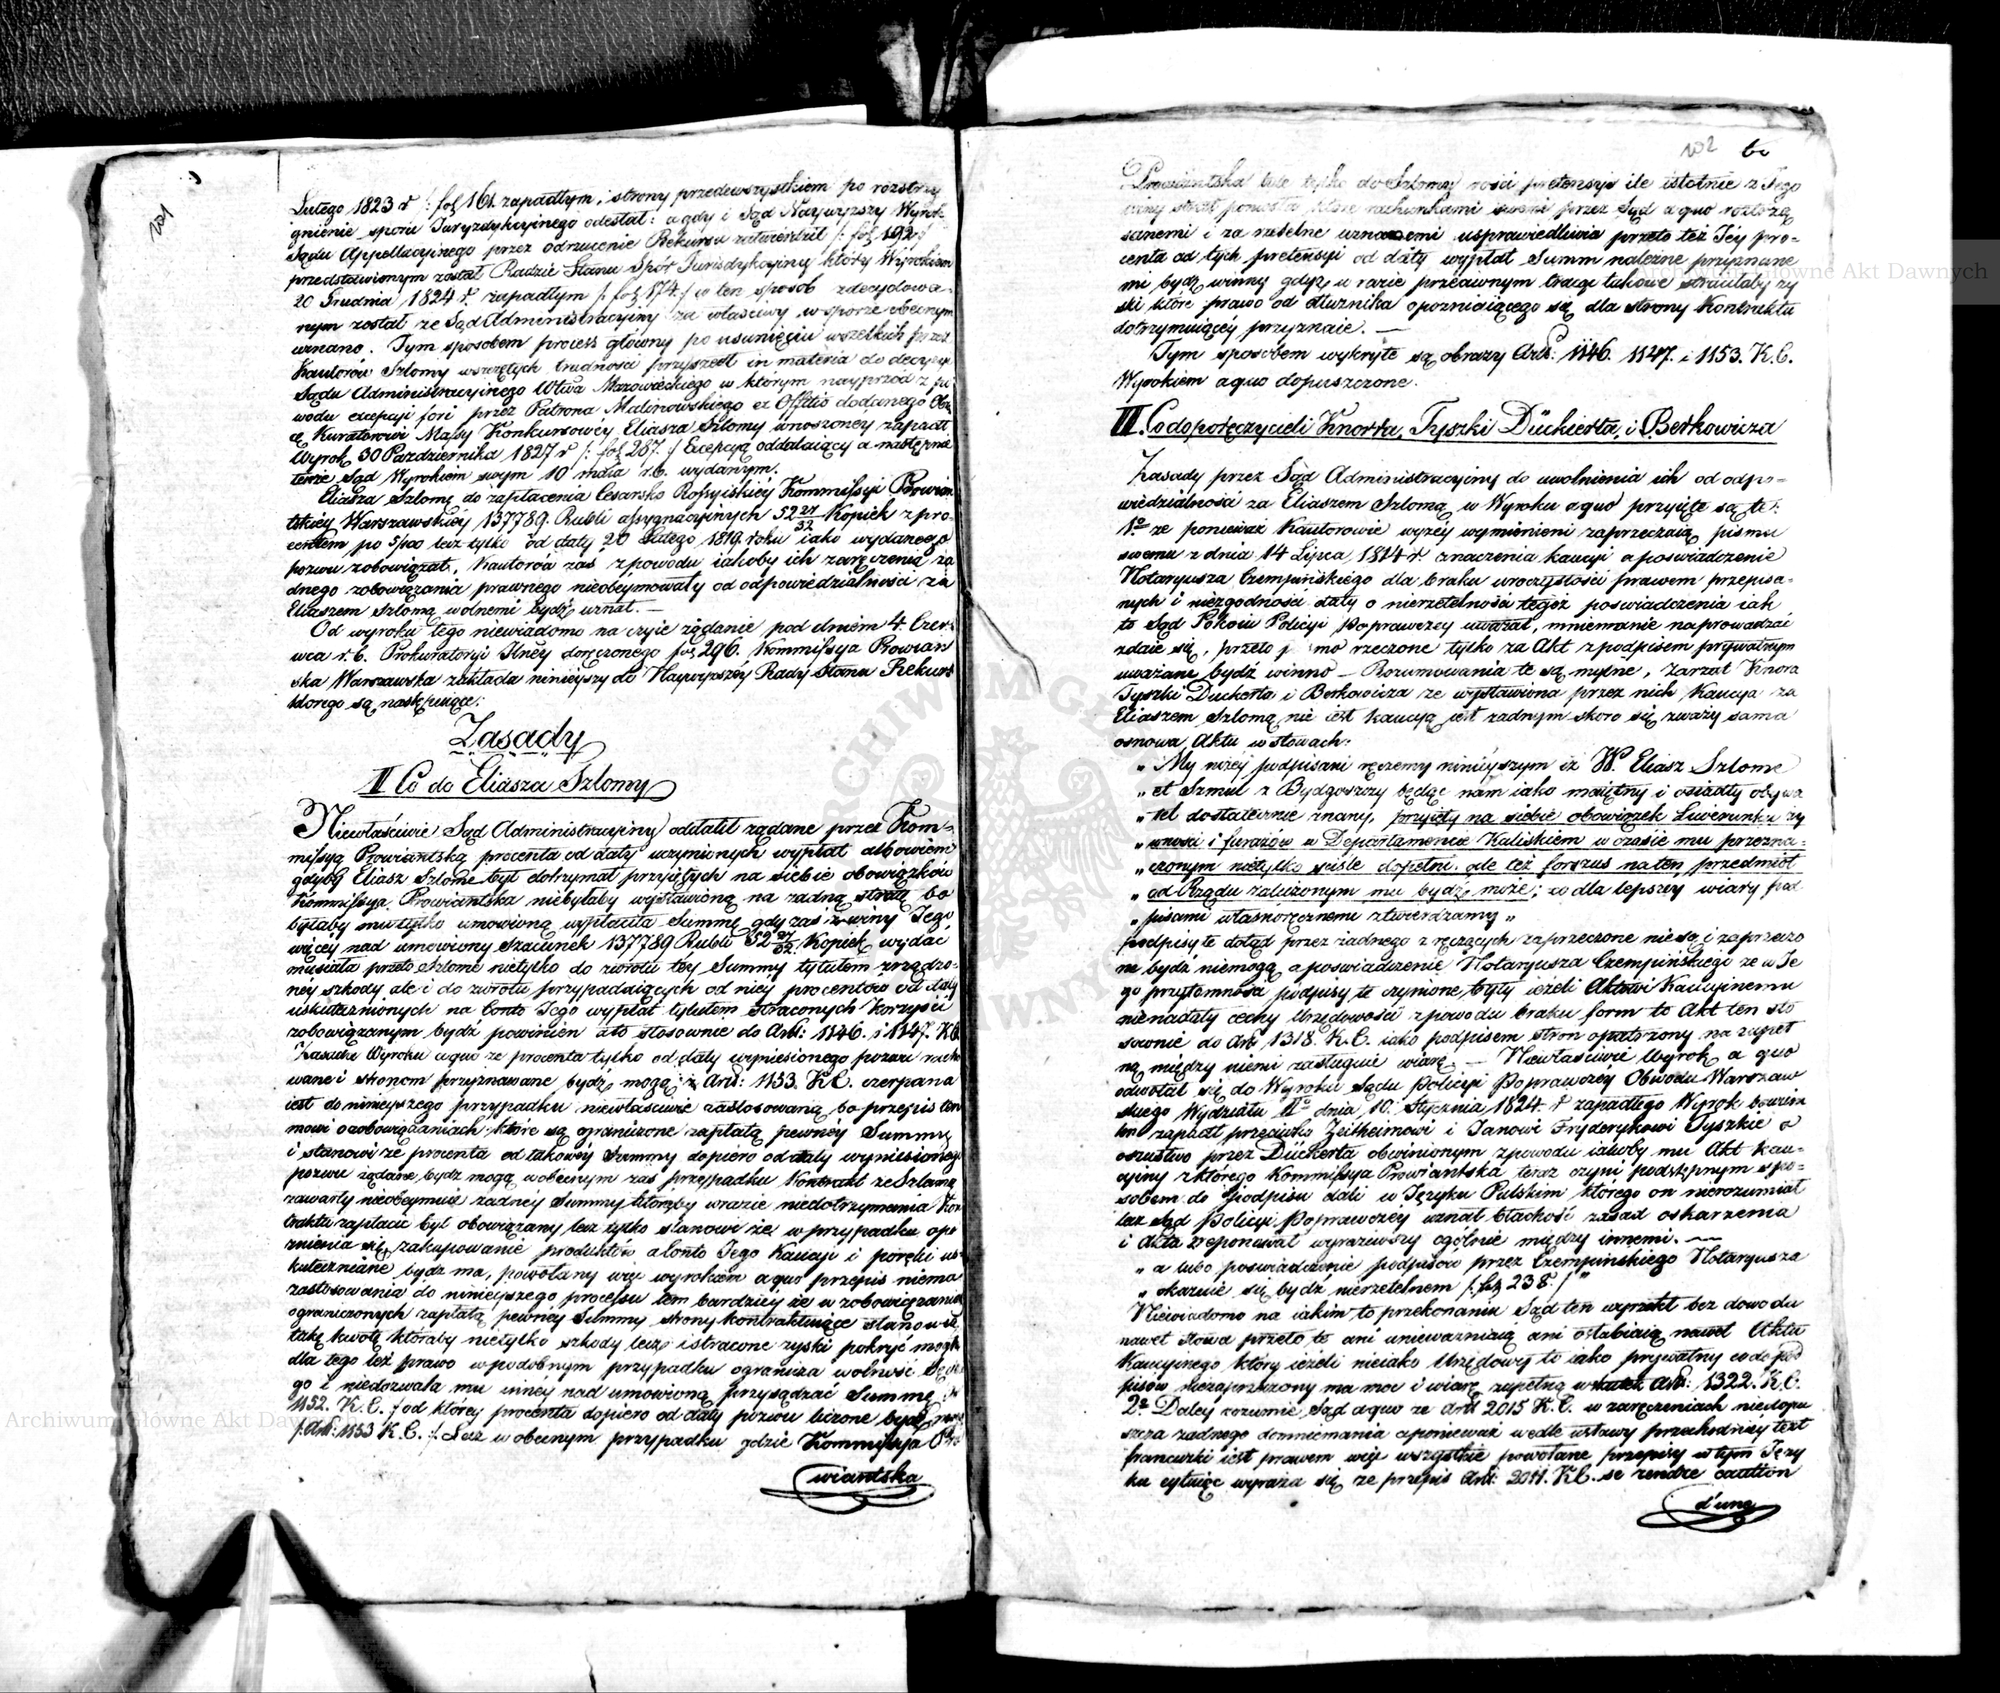 201
Lutego 1823 r /: fol 161. zapadłym, strony przedewszystkiem po rozstrzy
gnienie sporu Juryzdykcyinego odesłał: a gdy i Sąd Naywyższy Wyrok
Sądu Appellacyinego przez odrzucenie Rekursu zatwierdził /: fol 192 :/
przedstawionym został Radzie Stanu Spór Jurisdykcyiny który Wyrokiem
20 Grudnia 1824 r. zapadłym /: fol 174 :/ w ten sposób zdecydowa-
nym został ze Sąd Administracyiny za właściwy w sporze obecnym
uznano. Tym sposobem process główny po usunięciu wszelkich przez
Kautorów Szlomy wszczętych trudności przyszedł in materia do decyzyi
Sądu Administracyinego Wtwa Mazowieckiego w którym nayprzód z po
wodu excepcyi fori przez Patrona Malinowskiego ex Offitio dodanego Obro
cę Kuratorowi Massy Konkursowey Eliasza Szlomy wnoszoney zapadł
Wyrok 30 Pazdziernika 1827 r /: fol 287. :/ Excepcyą oddalaiący a następnie
tenże Sąd Wyrokiem swym 10 maia r.b. wydanym.
Eliasza Szlomę do zapłacenia Cesarsko Rossyiskiéy Kommissyi Prowian
tskiéy Warszawskiéy 137789. Rubli assygnacyinych 52 27/32 Kopiek z pro-
centem po 5/100 lecz tylko od daty 20 Lutego 1819 roku iako wydanego
pozwu zobowiązał, Kautorów zaś z powodu iakoby ich zaręczenia ża
dnego zobowiązania prawnego nieobeymowały od odpowiedzialności za
Eliaszem Szlomą wolnemi bydź uznał. —
Od wyroku tego niewiadomo na czyie żądanie pod dniem 4. Czer-
wca r.b. Prokuratoryi Jlnéy doręczonego fol 296. Kommissya Prowian
ska Warszawska zakłada ninieyszy do Naywyższéy Rady Stanu Rekurs
którego są następuiące:
Zasady
II Co do Eliasza Szlomy
Niewłaściwie Sąd Administracyiny oddalił żądane przez Kom-
missyą Prowiantską procenta od daty uczynionych wypłat albowiem
gdyby Eliasz Szlome był dotrzymał przyiętych na siebie obowiązków
Kommissya Prowiantska niebyłaby wystawioną na żadną stratę bo
byłaby mu tylko umówioną wypłaciła Summę gdy zaś z winy Jego
więcéy nad umówiony szacunek 137789 Rubli 52 27/32 Kopiek wydać
musiała przeto Szlome nietylko do zwrotu téy Summy tytułem zrządzo-
néy szkody ale i do zwrotu przypadaiących od niéy procentów od daty
uskutecznionych na Conto Jego wypłat tytułem straconych korzyści
zobowiązanym bydź powinien a to stosownie do Art: 1146. i 1147. K.C.
Zasada Wyroku a quo ze procenta tylko od daty wyniesionego pozwu racho
wane i stronom przyznawane bydź mogą z Art: 1153. K.C. czerpana
iest do ninieyszego przypadku niewłaściwie zastosowaną bo przepis ten
mówi o zobowiązaniach które są ograniczone zapłatą pewnéy Summy
i stanowi ze procenta od takowéy Summy dopiero od daty wyniesionego
pozwu żądane bydź mogą w obecnym zaś przypadku Kontrakt ze Szlomą
zawarty nieobeymuie żadnéy Summy którąby w razie niedotrzymania Kon
traktu zapłacić był obowiązany lecz tylko stanowi że w przypadku opo
znienia się, zakupowanie produktów a Conto Jego Kaucyi i poręki us-
kutecznianie bydz ma, powołany więc wyrokiem a quo przepis niema
zastosowania do ninieyszego processu tem bardziéy że w zobowiązaniach
ograniczonych zapłatą pewnéy Summy strony kontraktuiące stanowią
taką kwotę któraby nietylko szkody lecz i stracone zyski pokryć mogła
dla tego też prawo w podobnym przypadku ogranicza wolność Sędzie
go i niedozwala mu innéy nad umówioną przysądzać Summę
1152. K.C. / od któréy procenta dopiero od daty pozwu liczone bydź mogą
/: Art: 1153 K.C. :/ Lecz w obecnym przypadku gdzie Kommissya Pro
wiantska
202
Prowiantska tyle tylko do Szlomy rości pretensyi ile istotnie z Jego
winy strat poniosła które rachunkami swemi przez Sąd a quo roztrzą
sanemi i za rzetelne uznanemi usprawiedliwia przeto też Jéy pro-
centa od tych pretensyi od daty wypłat Summ należne przyznane
mi bydź winny gdyż w razie przeciwnym traciłaby zy
ski które prawo od dłużnika opozniaiącego się dla strony Kontraktu
dotrzymuiącéy przyznaie. —
Tym sposobem wykryte są obrazy Art: 1146. 1147. i 1153. K.C.
Wyrokiem a quo dopuszczone.
III. Co do poręczycieli Knorra, Tyszki Dückerta, i Berkowicza
Zasady przez Sąd Administracyiny do uwolnienia ich od odpo-
wiedzialności za Eliaszem Szlomą w Wyroku a quo przyięte są te:
1o ze ponieważ Kautorowie wyżéy wymienieni zaprzeczaią pismu
swemu z dnia 14 Lipca 1814 r. znaczenia kaucyi a poświadczenie
Notaryusza Czempińskiego dla braku uroczystości prawem przepisa-
nych i niezgodności daty o nierzetelności tegoż poświadczenia iak
to Sąd Pokoiu Policyi Poprawczey uważał, mniemanie naprowadzać
zdaie się, przeto pismo rzeczone tylko za Akt z podpisem prywatnym
uważane bydź winno — Rozumowania te są mylne, Zarzut Knora
Tyszki Dückerta i Berkowicza ze wystawiona przez nich Kaucya za
Eliaszem Szlomą nie iest kaucyą iest żadnym skoro się zważy sama
osnowa Aktu w słowach:
„ My niżéy podpisani ręczemy ninieyszym iż W. Eliasz Szlome
„ et Szmul z Bydgoszczy będąc nam iako maiętny i osiadły obywa
„ tel dostatecznie znany, przyięty na siebie obowiązek Liwerunku ży
„ wności i furażów w Departamencie Kaliskiem w czasie mu przezna-
„ czonym nietylko ściśle dopełni ale też forszus na ten przedmiot
„ od Rządu zaliczonym mu bydź może; co dla lepszéy wiary pod-
„ pisami własnoręcznemi ztwierdzamy „
podpisy te dotąd przez żadnego z ręczących zaprzeczone nie są i zaprzeczo
ne bydź niemogą a poświadczenie Notaryusza Czempińskiego ze w Je
go przytomności podpisy te czynione były ieżeli Aktowi Kaucyinemu
nienadały cechy Urzędowości z powodu braku form to Akt ten sto
sownie do Art 1318. K.C. iako podpisem stron opatrzony na zupeł
ną między niemi zasługuie wiarę. — Niewłaściwie Wyrok a quo
odwołał się do Wyroku Sądu Policyi Poprawczéy Obwodu Warszaw
skiego Wydziału IIo dnia 10. Stycznia 1824. r zapadłego Wyrok bowiem
ten zapadł przeciwko Zeitheimowi i Janowi Fryderykowi Tyszkie o
oszustwo przez Dückerta obwinionym z powodu iakoby mu Akt Kau-
cyiny z którego Kommissya Prowiantska teraz czyni podstępnym spo-
sobem do podpisu dali w Języku Polskim którego on nierozumiał
lecz Sąd Policyi Poprawczéy uznał błachość zasad oskarżenia
i Akta reponował wyraziwszy ogólnie między innemi. —
„ a lubo poświadczenie podpisów przez Czempińskiego Notaryusza
„ okazuie się bydź nierzetelnem /: fol 238. :/ ”
Niewiadomo na iakim to przekonaniu Sąd ten wyrzekł bez dowodu
nawet słowa przeto te ani unieważniaią ani osłabiaią nawet Aktu
Kaucyinego który ieżeli nieiako Urzędowy to iako prywatny co do pod
pisów niezaprzeczony ma moc i wiarę zupełną Art: 1322. K.C.
2o Daléy rozumie Sąd a quo ze Art 2015 K.C. w zaręczeniach niedopu
szcza żadnego domniemania a ponieważ wedle ustawy przechodniéy text
francuzki iest prawem więc wszystkie powołane przepisy w tym Języ
ku cytuiąc wyraża się ze przepis Art: 2011. K.C. se rendre caution
d'une